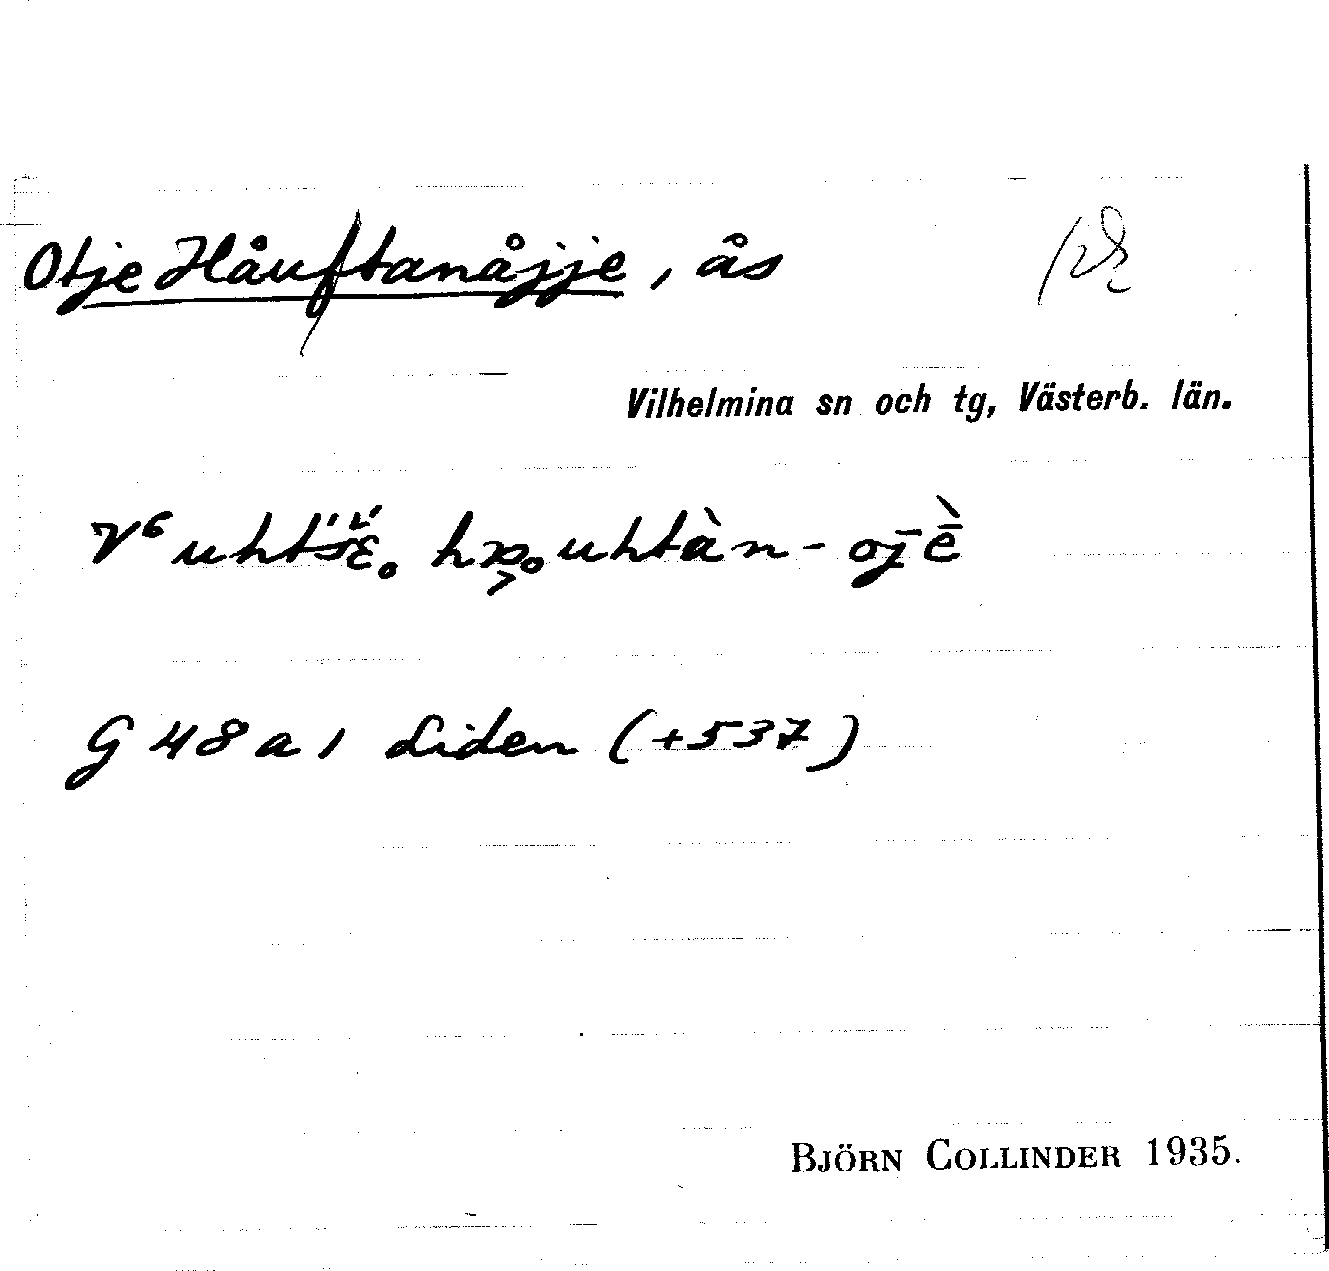 Otje Håuftanåjje, ås
Vilhelmina sn och tg, Västerb. län.
G 48 a 1 Liden (+537)
BJÖRN COLLINDER 1935.